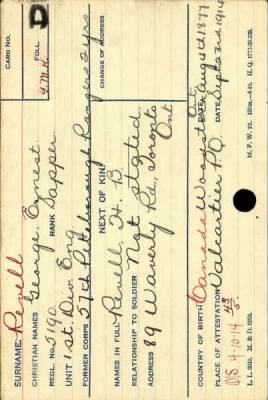 CARD NO.
FOLL. D
SURNAME Revell
CHRISTIAN NAMES George Ernest
REGL. NO. 5190 RANK Sapper
UNIT 1st. Div Eng
FORMER CORPS 57th Peterborough Rangers 2 yrs
NEXT OF KIN
CHANGE OF ADDRESS
NAMES IN FULL Revell H. B
RELATIONSHIP TO SOLDIER Not stated
ADDRESS 89 Waverly Rd, Toronto
Ont
COUNTRY OF BIRTH Canada Woodstock Ont DATE Aug 4th 1877
PLACE OF ATTESTATION Valcartier P.Q. DATE Sept 23rd 1914
O/S 4-10-14
M. F. W. 22.